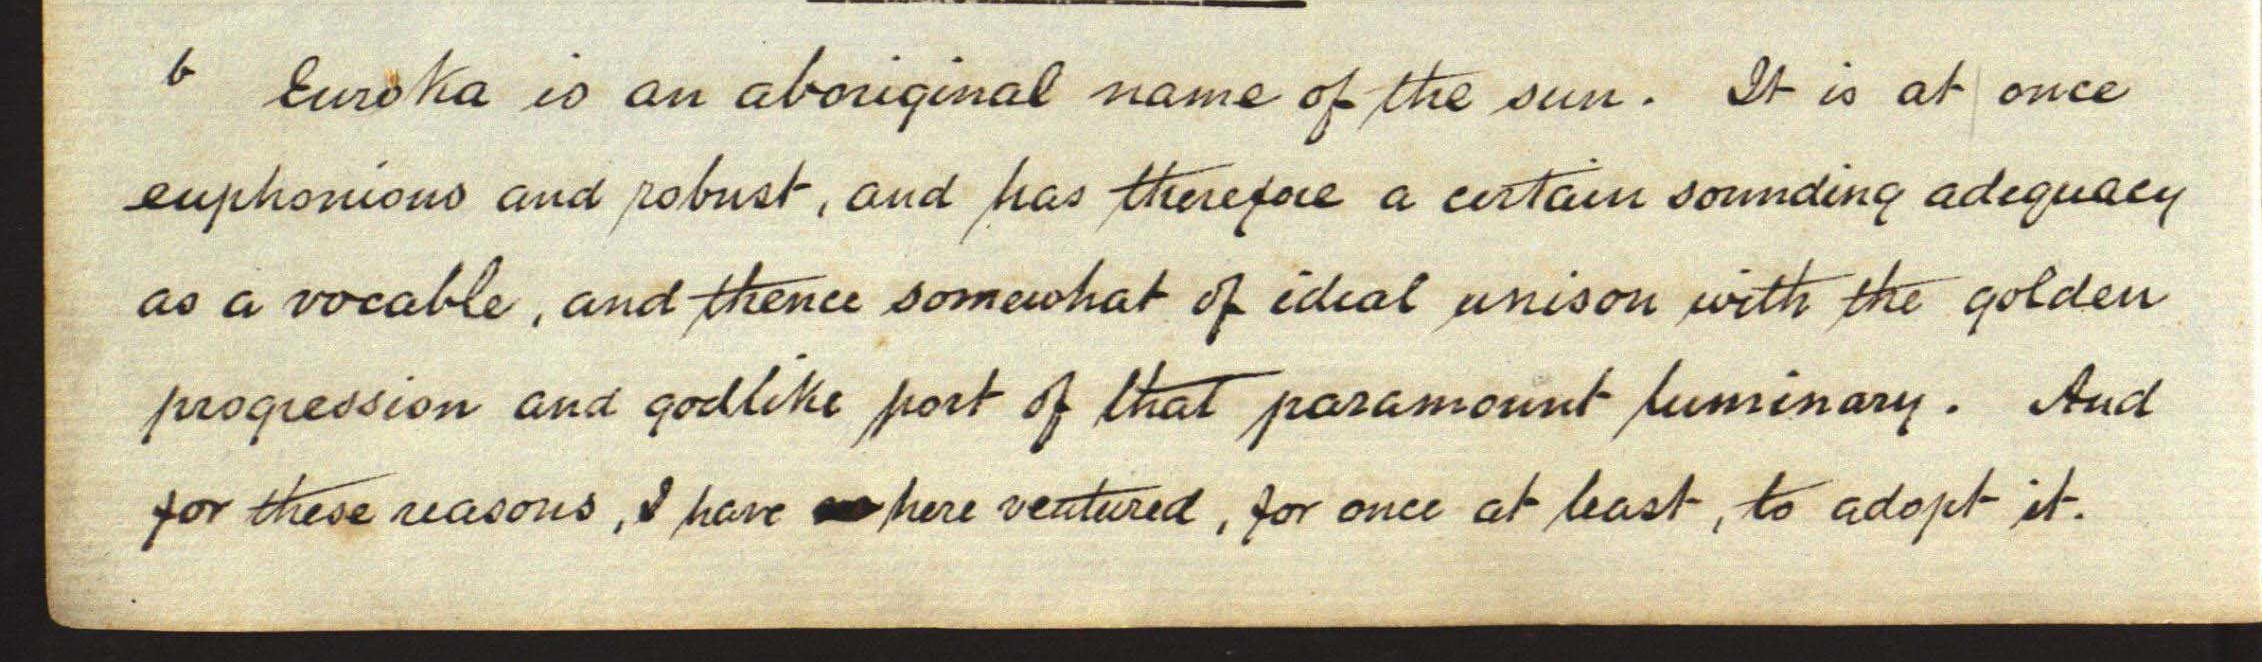 b Euroka is an aboriginal name of the sun. It is at once
euphonious and robust, and has therefore a certain sounding adequacy
as a vocable, and thence somewhat of ideal unison with the golden
progression and godlike port of that paramount luminary. And
for these reasons, I have here ventured, for once at least, to adopt it.